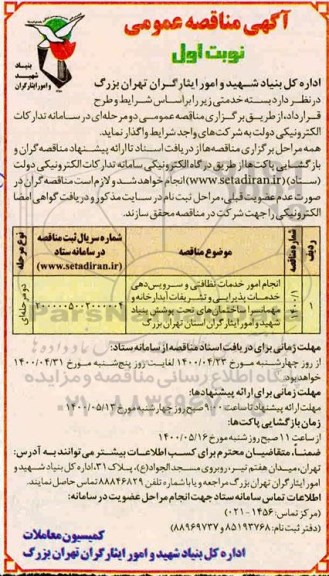 آگهی مناقصه عمومی
نوبت اول
بنیاد
شهید
و امور ایثارگران
اداره کل بنیاد شهید و امور ایثارگران تهران بزرگ
در نظر دارد بسته خدمتی زیر را بر اساس شرایط و طرح
قرارداد، از طریق برگزاری مناقصه عمومی دو مرحله‌ای در سامانه تدارکات
الکترونیکی دولت به شرکت‌های واجد شرایط واگذار نماید.
همه مراحل برگزاری مناقصه ها از دریافت اسناد تا ارائه پیشنهاد مناقصه گران و
بازگشایی پاکت‌ها از طریق درگاه الکترونیکی سامانه تدارکات الکترونیکی دولت
(ستاد) (www.setadiran.ir) انجام خواهد شد و لازم است مناقصه گران در
صورت عدم عضویت قبلی، مراحل ثبت نام در سایت مذکور و دریافت گواهی امضا
الکترونیکی را جهت شرکت در مناقصه محقق سازند.
ردیف شماره مناقصه موضوع مناقصه شماره سریال ثبت مناقصه در سامانه ستاد (www.setadiran.ir) نوع مرحله
۱۴۰۰/۱ انجام امور خدمات نظافتی و سرویس دهی
خدمات پذیرایی و تشریفات آبدارخانه و
مهمانسرا ساختمان‌های تحت پوشش بنیاد
شهید و امور ایثارگران استان تهران بزرگ
۲۰۰۰۰۰۵۰۰۲۰۰۰۰۰۴ دو مرحله‌ای
مهلت زمانی برای دریافت اسناد مناقصه از سامانه ستاد:
از روز چهارشنبه مورخ ۱۴۰۰/۰۴/۲۳ لغایت روز پنج‌شنبه مورخ ۱۴۰۰/۰۴/۳۱
خواهد بود.
مهلت زمانی برای ارائه پیشنهادها:
مهلت ارائه پیشنهاد تا ساعت ۹:۰۰ صبح روز چهارشنبه مورخ ۱۴۰۰/۰۵/۱۳
زمان بازگشایی پاکت‌ها:
از ساعت ۱۱ صبح روز شنبه مورخ ۱۴۰۰/۰۵/۱۶
ضمناً، متقاضیان محترم برای کسب اطلاعات بیشتر می‌توانند به آدرس:
تهران، میدان هفتم تیر، روبروی مسجد الجواد(ع)، پلاک ۳۱، اداره کل بنیاد شهید و
امور ایثارگران تهران بزرگ مراجعه و یا با شماره تلفن ۸۸۸۴۶۸۲۹ تماس حاصل نمایند.
اطلاعات تماس سامانه ستاد جهت انجام مراحل عضویت در سامانه:
(مرکز تماس: ۱۴۵۶-۰۲۱)
(دفتر ثبت نام: ۸۵۱۹۳۷۶۸ و ۸۸۹۶۹۷۳۷)
کمیسیون معاملات
اداره کل بنیاد شهید و امور ایثارگران تهران بزرگ